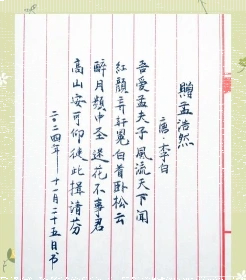 贈孟浩然
唐·李白
吾爱孟夫子風流天下聞
红顏弃軒冕白首卧松云
醉月頻中圣迷花不事君
高山安可仰徒此揖清芬
二〇二四年 十一月二十五日书